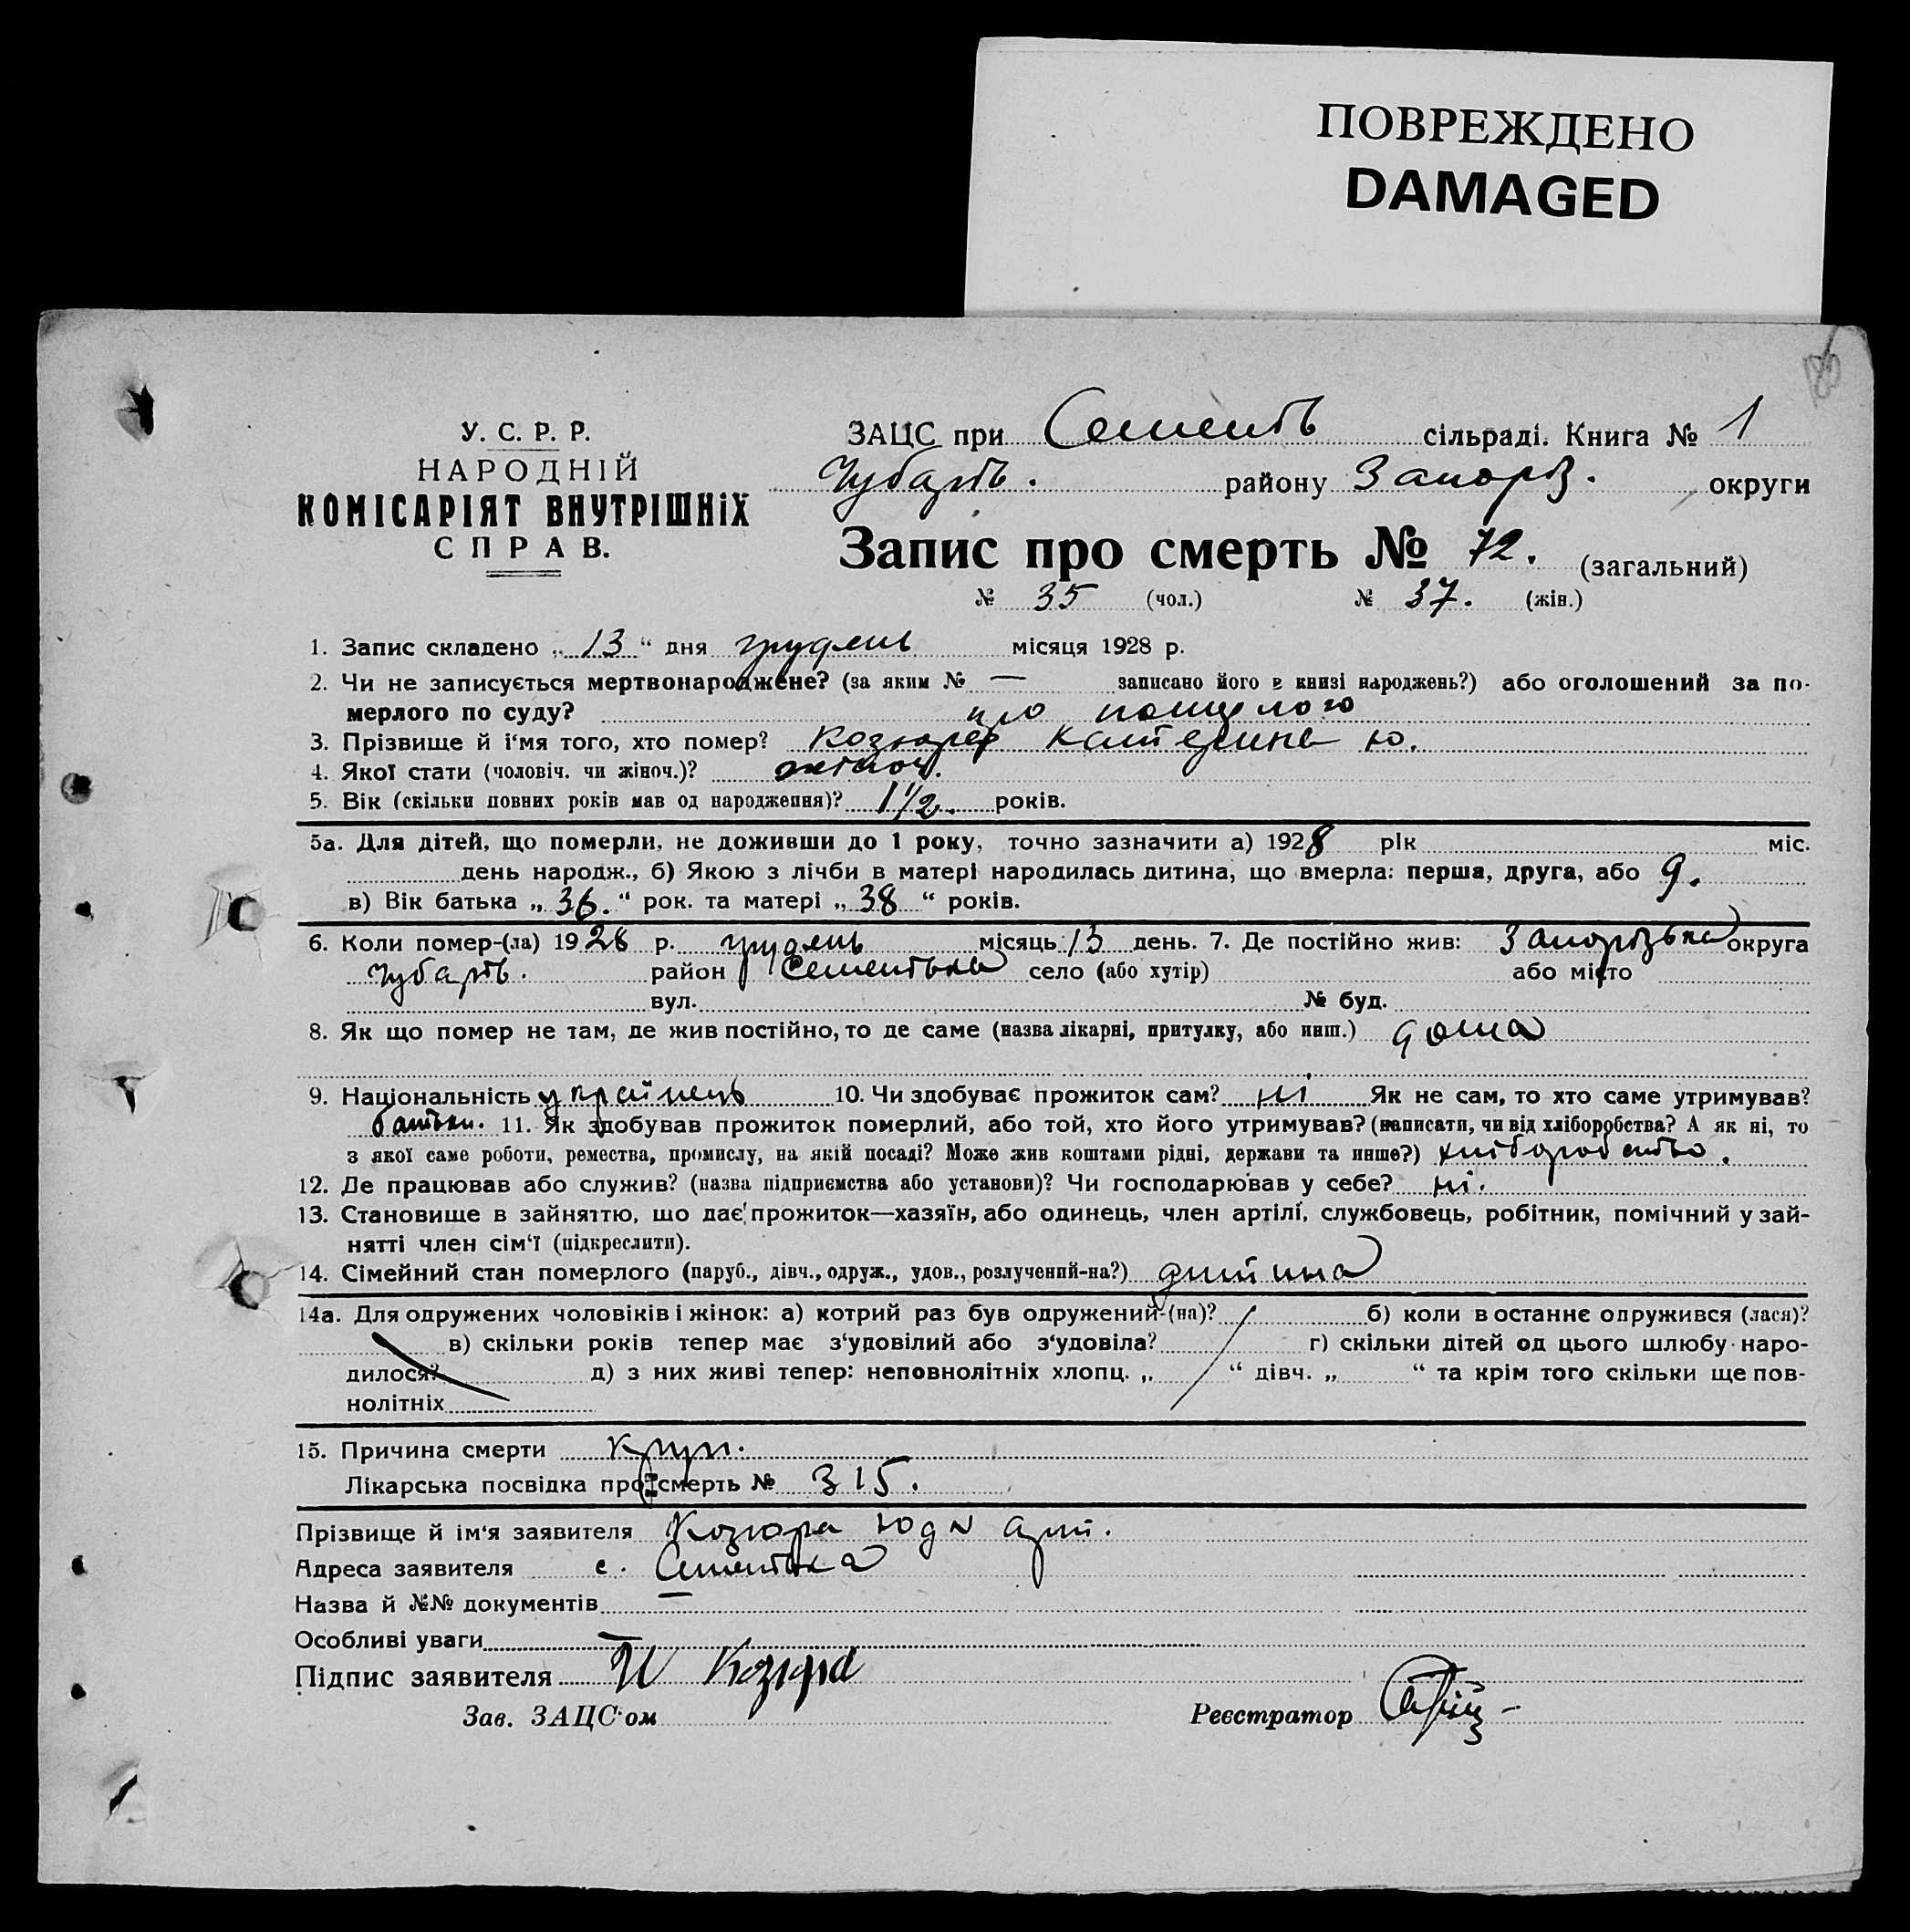 ПОВРЕЖДЕНО
DAMAGED
У. С. Р. Р.
НАРОДНІЙ
КОМІСАРІЯТ ВНУТРІШНіХ
СПРАВ.
ЗАЦС при Семенів сільраді. Книга № 1
Чубарів. району Запоріз. округи
Запис про смерть № 72. (загальний)
№ 35 (чол.) № 37. (жін.)
1. Запис складено „ 13 “ дня грудень місяця 1928 р.
2. Чи не записується мертвонароджене? (за яким № — записано його в книзі народжень?) або оголошений за по-
мерлого по суду? про
3. Прізвище й і‘мя того, хто помер? Козюра Катерина Ю.
4. Якої стати (чоловіч. чи жіноч.)? жіноч.
5. Вік (скільки повних років мав од народження)? 1 1/2. років.
5а. Для дітей, що померли, не доживши до 1 року, точно зазначити а) 1928 рік міс.
день народж., б) Якою з лічби в матері народилась дитина, що вмерла: перша, друга, або 9.
в) Вік батька „ 36. “ рок. та матері „ 38 “ років.
6. Коли помер-(ла) 1928 р. грудень місяць 13 день. 7. Де постійно жив: Запорізька округа
Чубарів. район Семенівка село (або хутір) або місто
вул. № буд.
8. Як що помер не там, де жив постійно, то де саме (назва лікарні, притулку, або инш.) дома
9. Національність українець 10. Чи здобуває прожиток сам? ні Як не сам, то хто саме утримував?
батьки. 11. Як здобував прожиток померлий, або той, хто його утримував? (написати, чи від хліборобства? А як ні, то
з якої саме роботи, ремества, промислу, на якій посаді? Може жив коштами рідні, держави та инше?) хліборобство.
12. Де працював або служив? (назва підприємства або установи)? Чи господарював у себе? ні.
13. Становище в зайняттю, що дає прожиток—хазяїн, або одинець, член артілі, службовець, робітник, помічний у зай-
нятті член сім‘ї (підкреслити).
14. Сімейний стан померлого (паруб., дівч., одруж., удов., розлучений-на?) дитина
14а. Для одружених чоловіків і жінок: а) котрий раз був одружений-(на)? б) коли в останнє одружився (лася)?
в) скільки років тепер має з‘удовілий або з‘удовіла? г) скільки дітей од цього шлюбу наро-
дилося? д) з них живі тепер: неповнолітніх хлопц. „ “ дівч. „ “ та крім того скільки ще пов-
нолітніх
15. Причина смерти Круп.
Лікарська посвідка про смерть № 315.
Прізвище й ім‘я заявителя Козюра
Адреса заявителя с. Семенівка
Назва й №№ документів —
Особливі уваги —
Підпис заявителя Козюра
Зав. ЗАЦС‘ом
Реєстратор